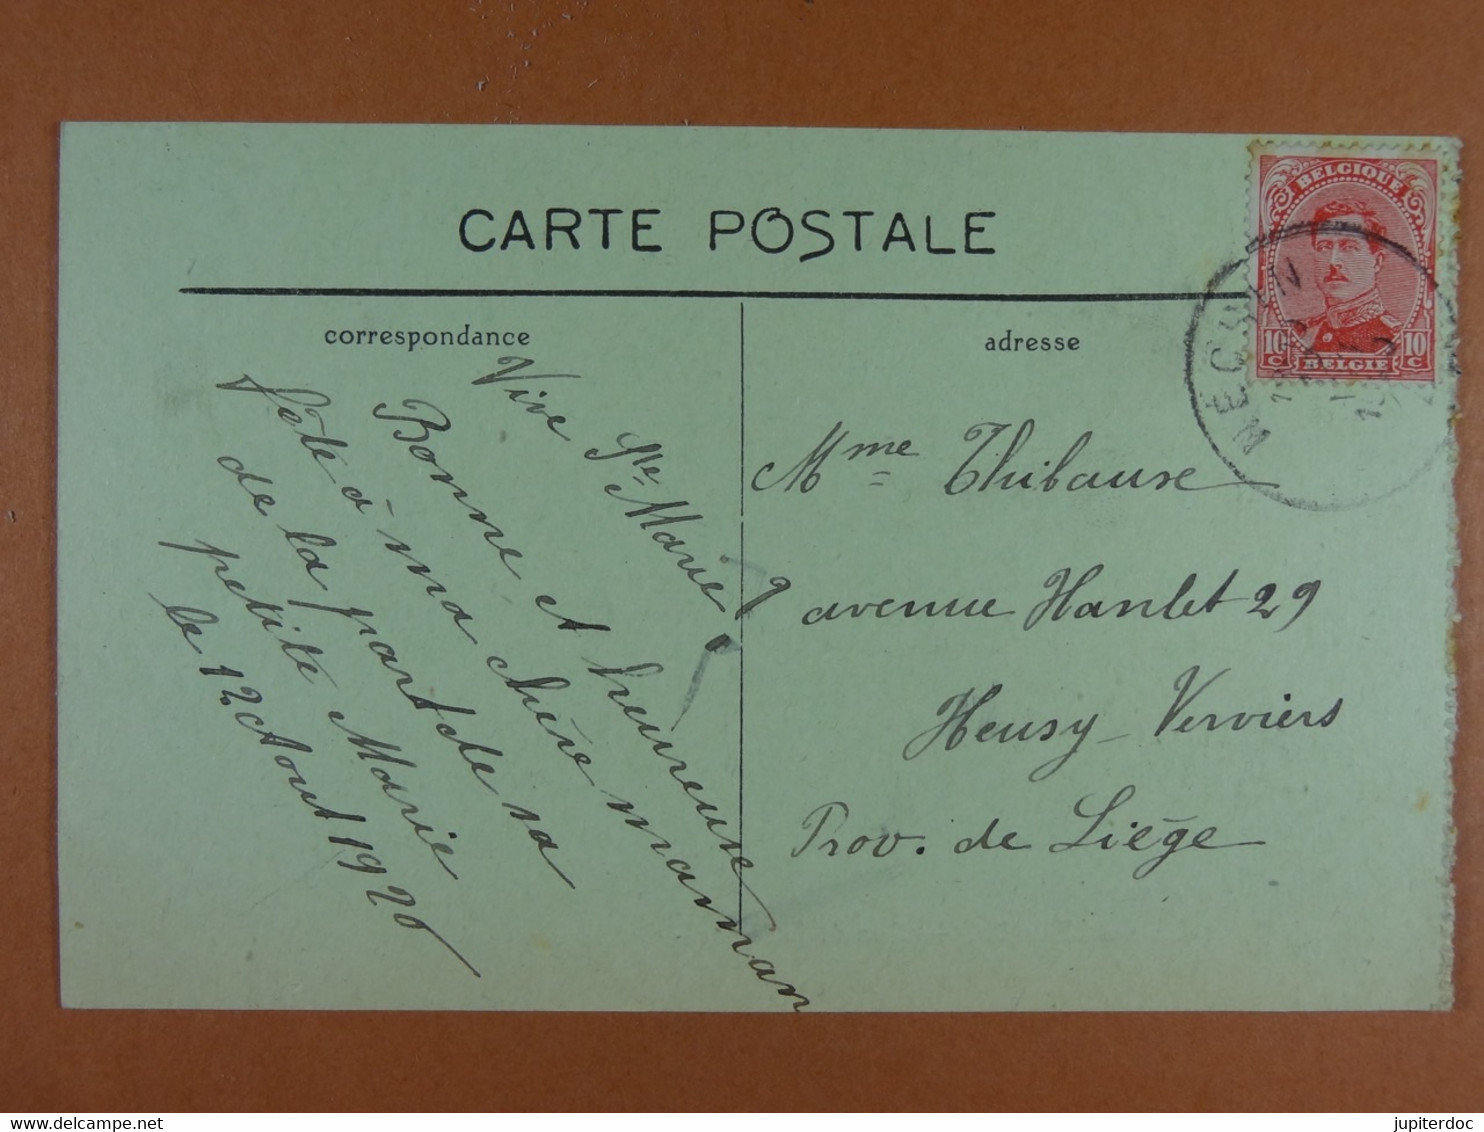 CARTE POSTALE
correspondance
Vive Ste Marie!
Bonne et heureuse
fête à ma chère maman
de la part de sa
petite Marie
le 12 Aout 1920
adresse
Mme Thibause
avenue Hanlet 29
Heusy - Verviers
Prov. de Liège
BELGIQUE
10 c 10 c
BELGIE
jupiterdoc